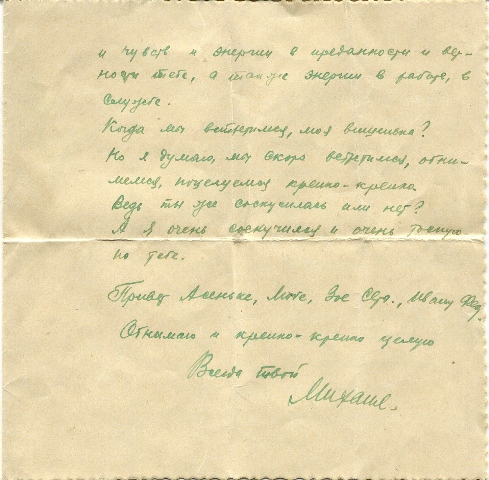 и чувств и энергии в преданности и вер-
ности тебе, а также энергии в работе, в
службе.
Когда мы встретимся, моя
Но я думаю, мы скоро встретимся, обни-
мемся, поцелуемся крепко-крепко
Ведь ты уже соскучилась или нет?
А я очень соскучился и очень тоскую
по тебе.
Привет Асеньке, Зое Ивану Фед.
Обнимаю и крепко-крепко целую
Всегда твой
Михаил.